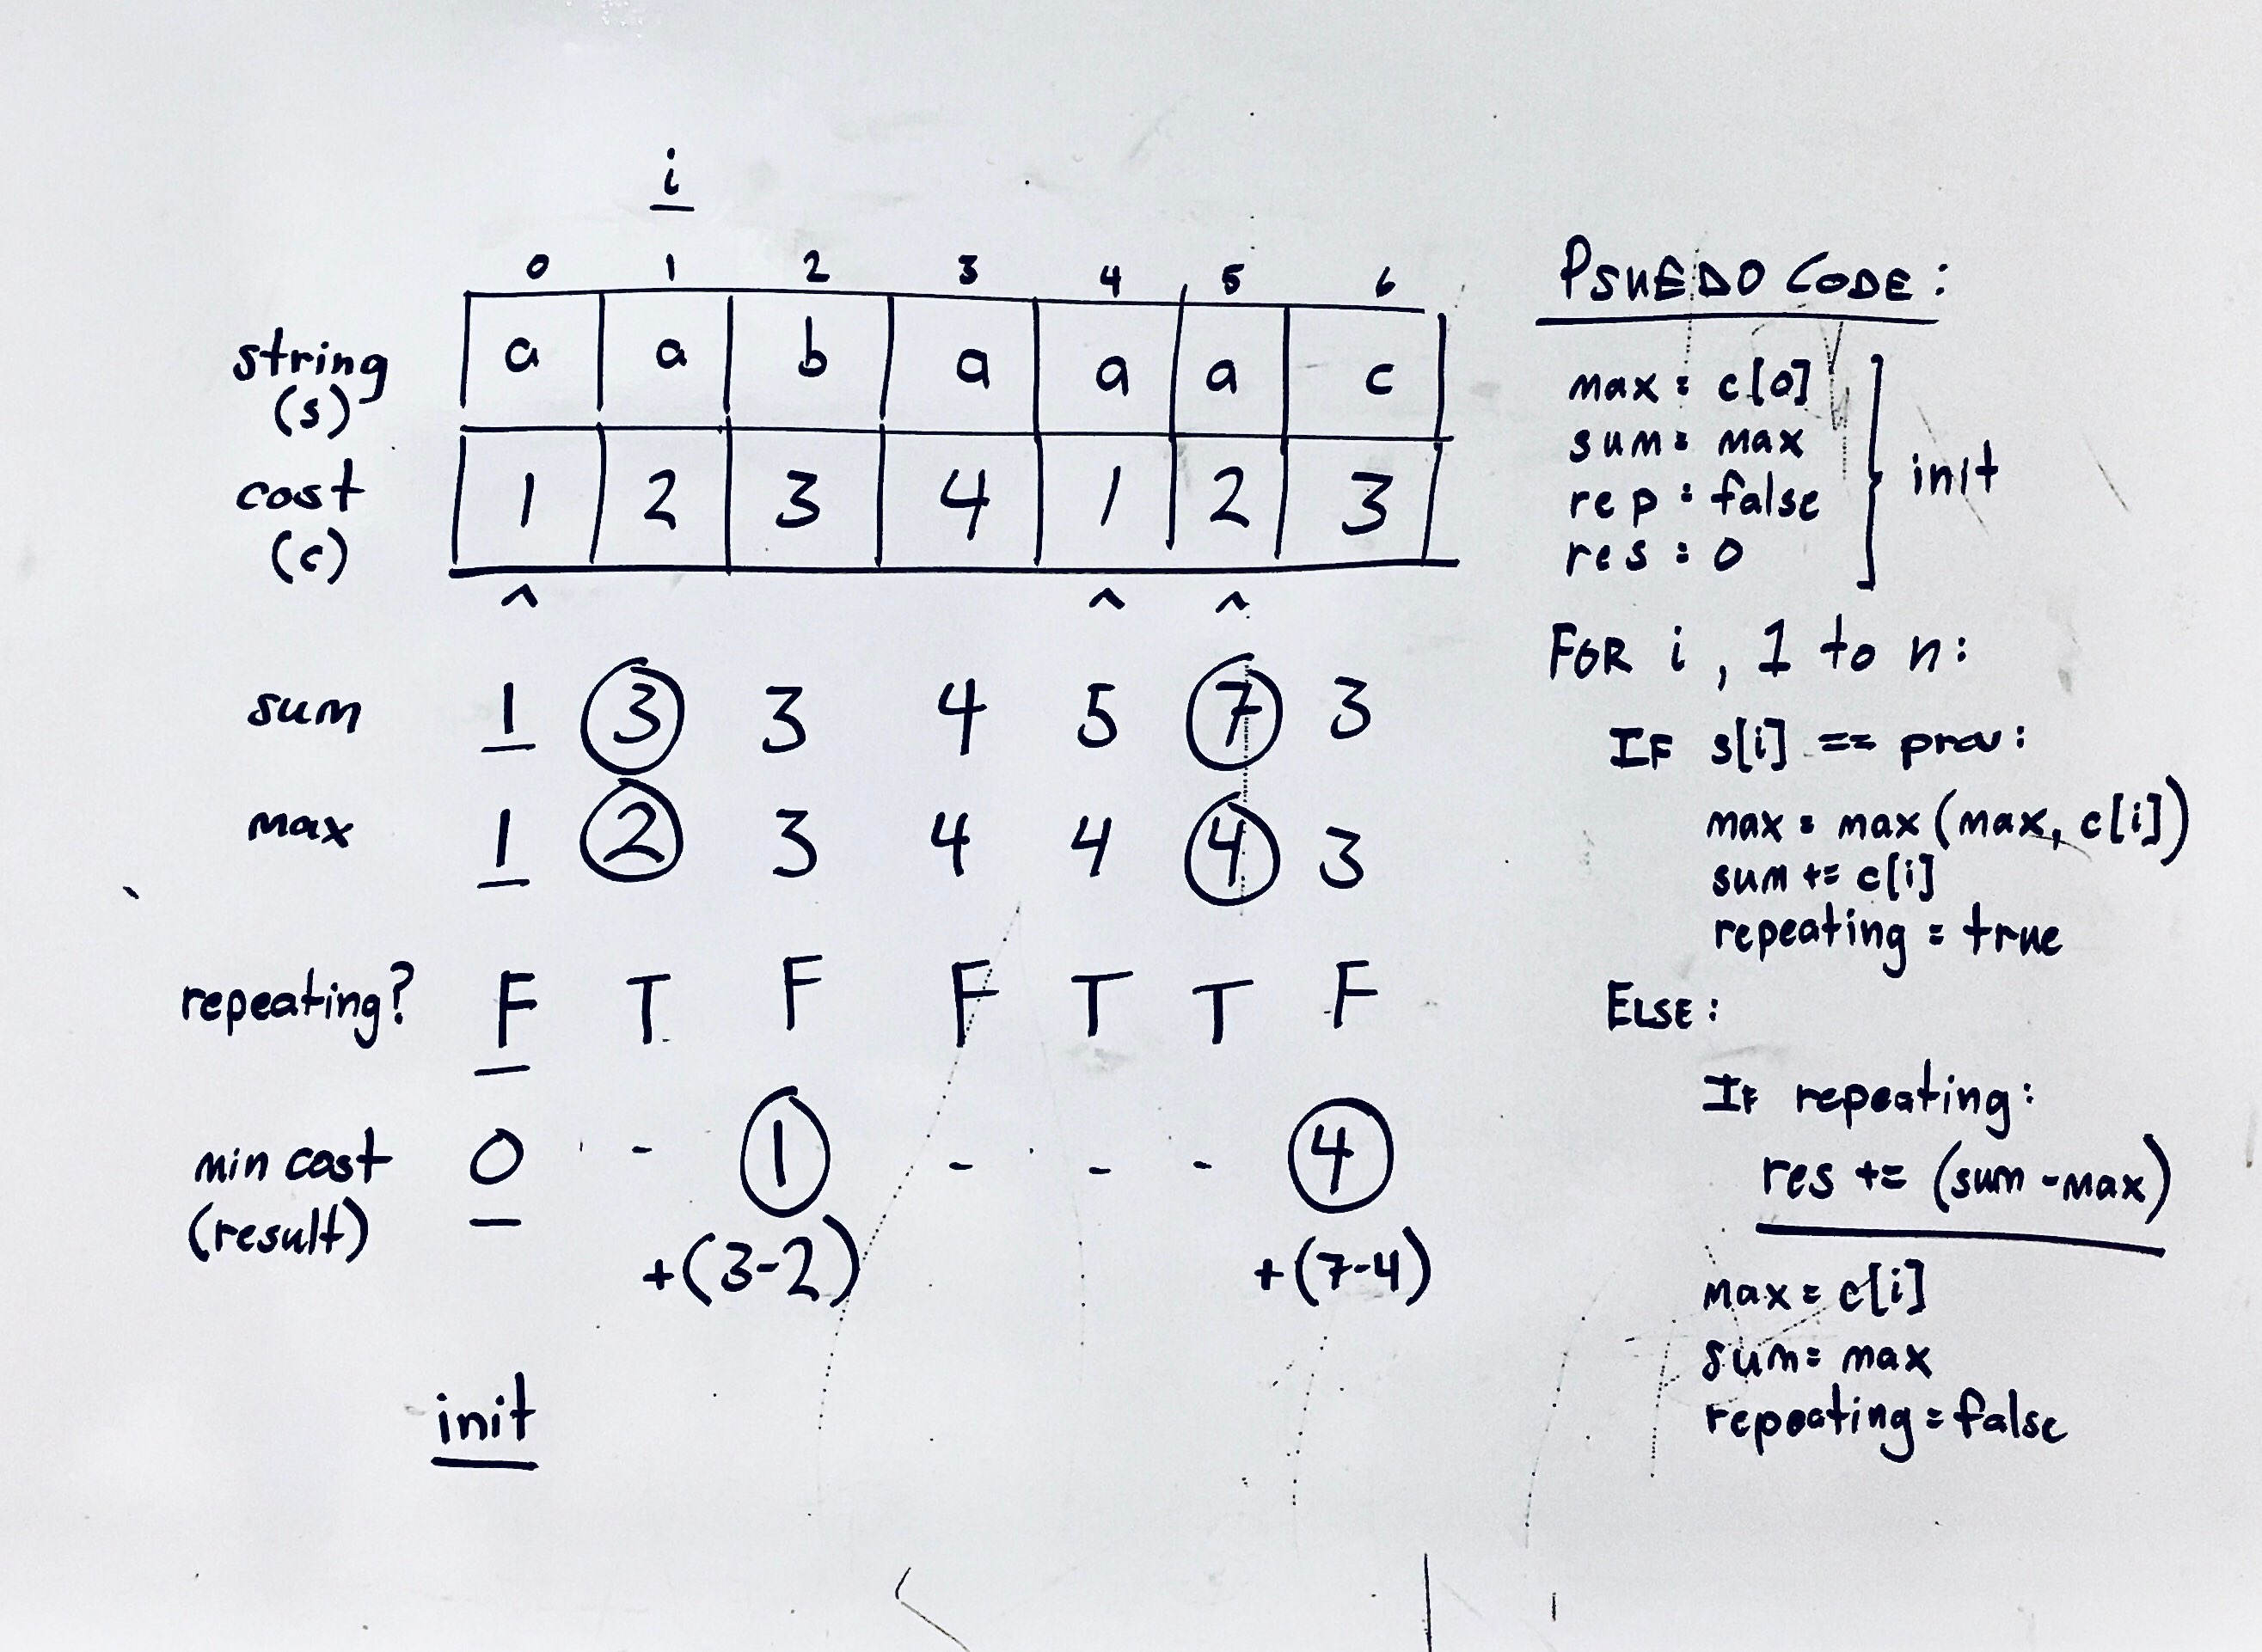 i
0 1 2 3 4 5 6
string (s) a a b a a a c
cost (c) 1 2 3 4 1 2 3
^ ^ ^
sum 1 3 3 4 5 7 3
max 1 2 3 4 4 4 3
repeating? F T F F T T F
min cost (result) 0 - 1 - - - 4
+(3-2) +(7-4)
init
PSUEDO CODE:
max = c[0]
sum = max
rep = false
res = 0
init
FOR i, 1 to n:
IF s[i] == prev:
max = max(max, c[i])
sum += c[i]
repeating = true
ELSE:
IF repeating:
res += (sum-max)
max = c[i]
sum = max
repeating = false